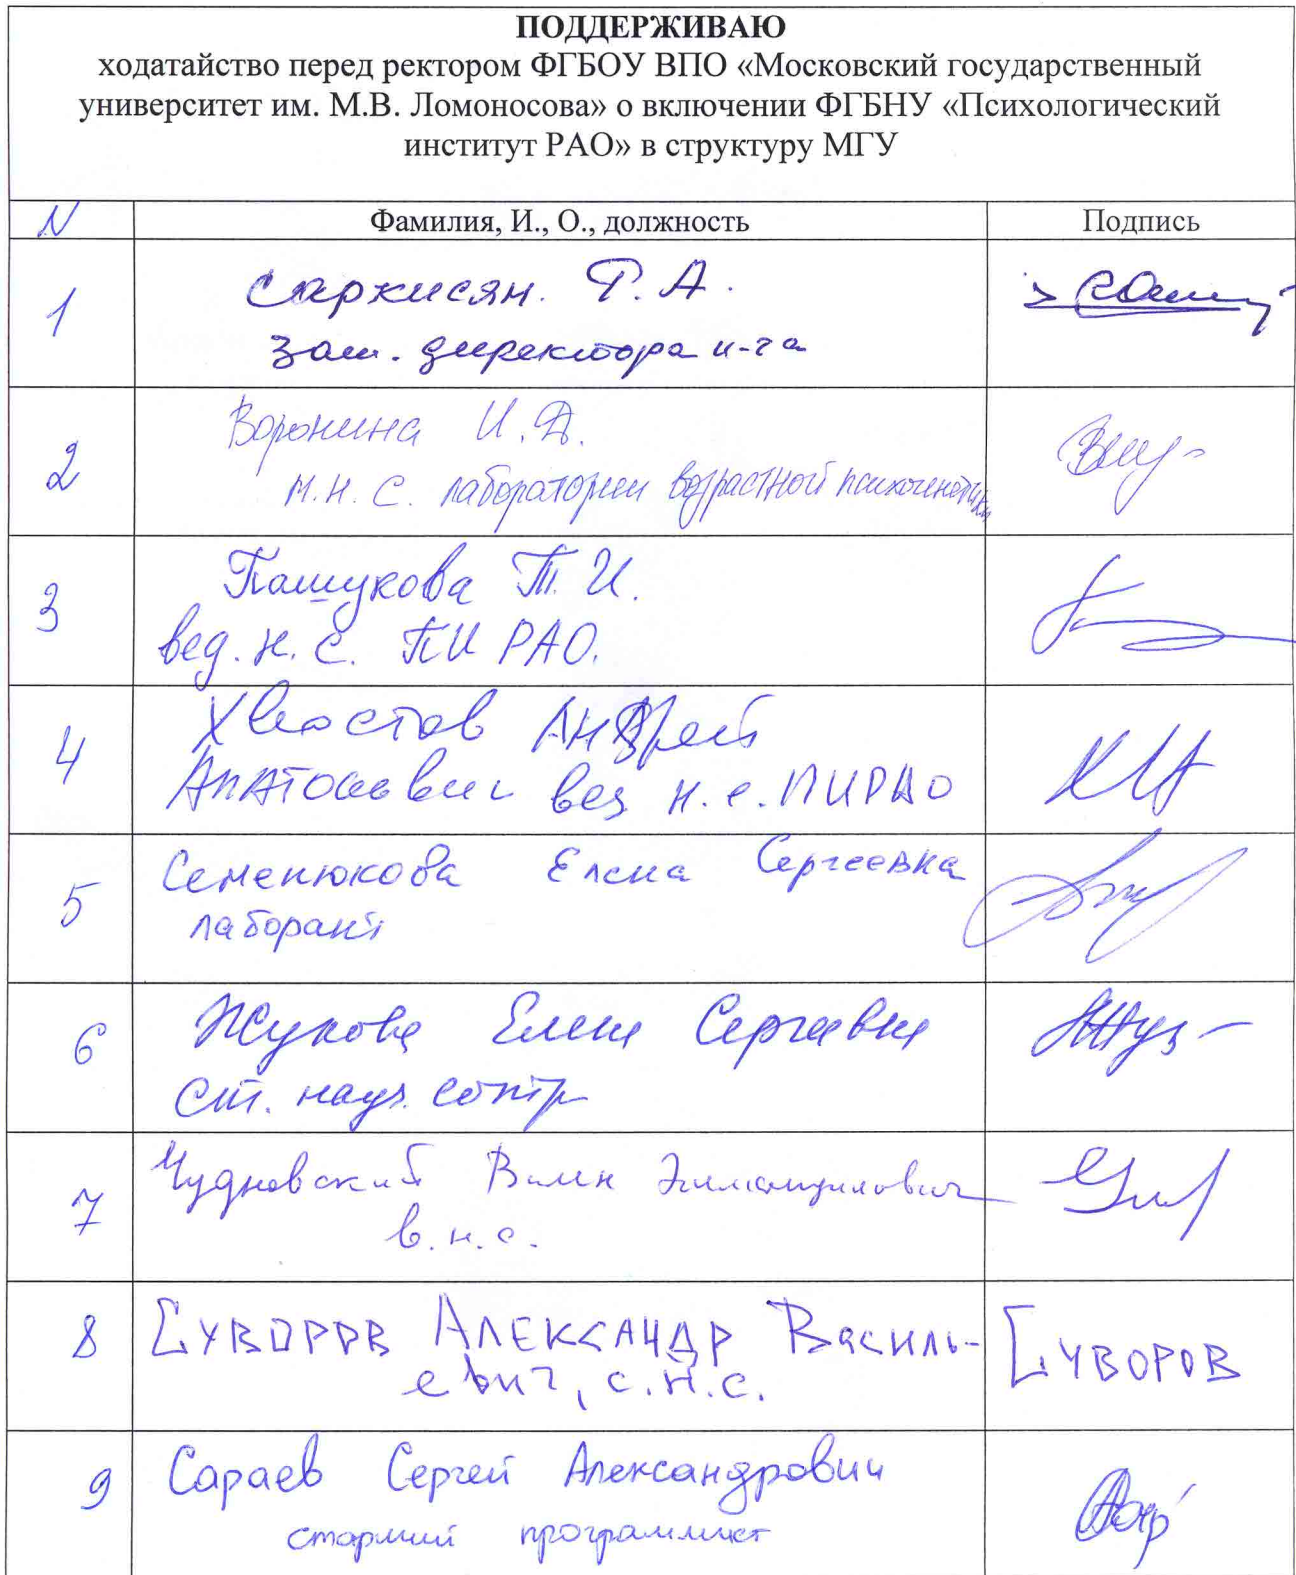 ПОДДЕРЖИВАЮ
ходатайство перед ректором ФГБОУ ВПО «Московский государственный
университет им. М.В. Ломоносова» о включении ФГБНУ «Психологический
институт РАО» в структуру МГУ
N Фамилия, И., О., должность Подпись
1 Саркисян. Г. А.
зам. директора и-та
2 Воронина И. Д.
м.н.с. лаборатории возрастной психогенетики
3 Пашукова Т. И.
вед. н. с. ПИ РАО.
4 Хвостов Андрей
Анатольевич вед н.с. ПИРАО
5 Семенюкова Елена Сергеевна
лаборант
6 Жукова Елена Сергеевна
ст. науч. сотр
7 Чудновский Вилен Эммануилович
в.н.с.
8 Суворов Александр Василь-
евич, с.н.с. Суворов
9 Сараев Сергей Александрович
старший программист